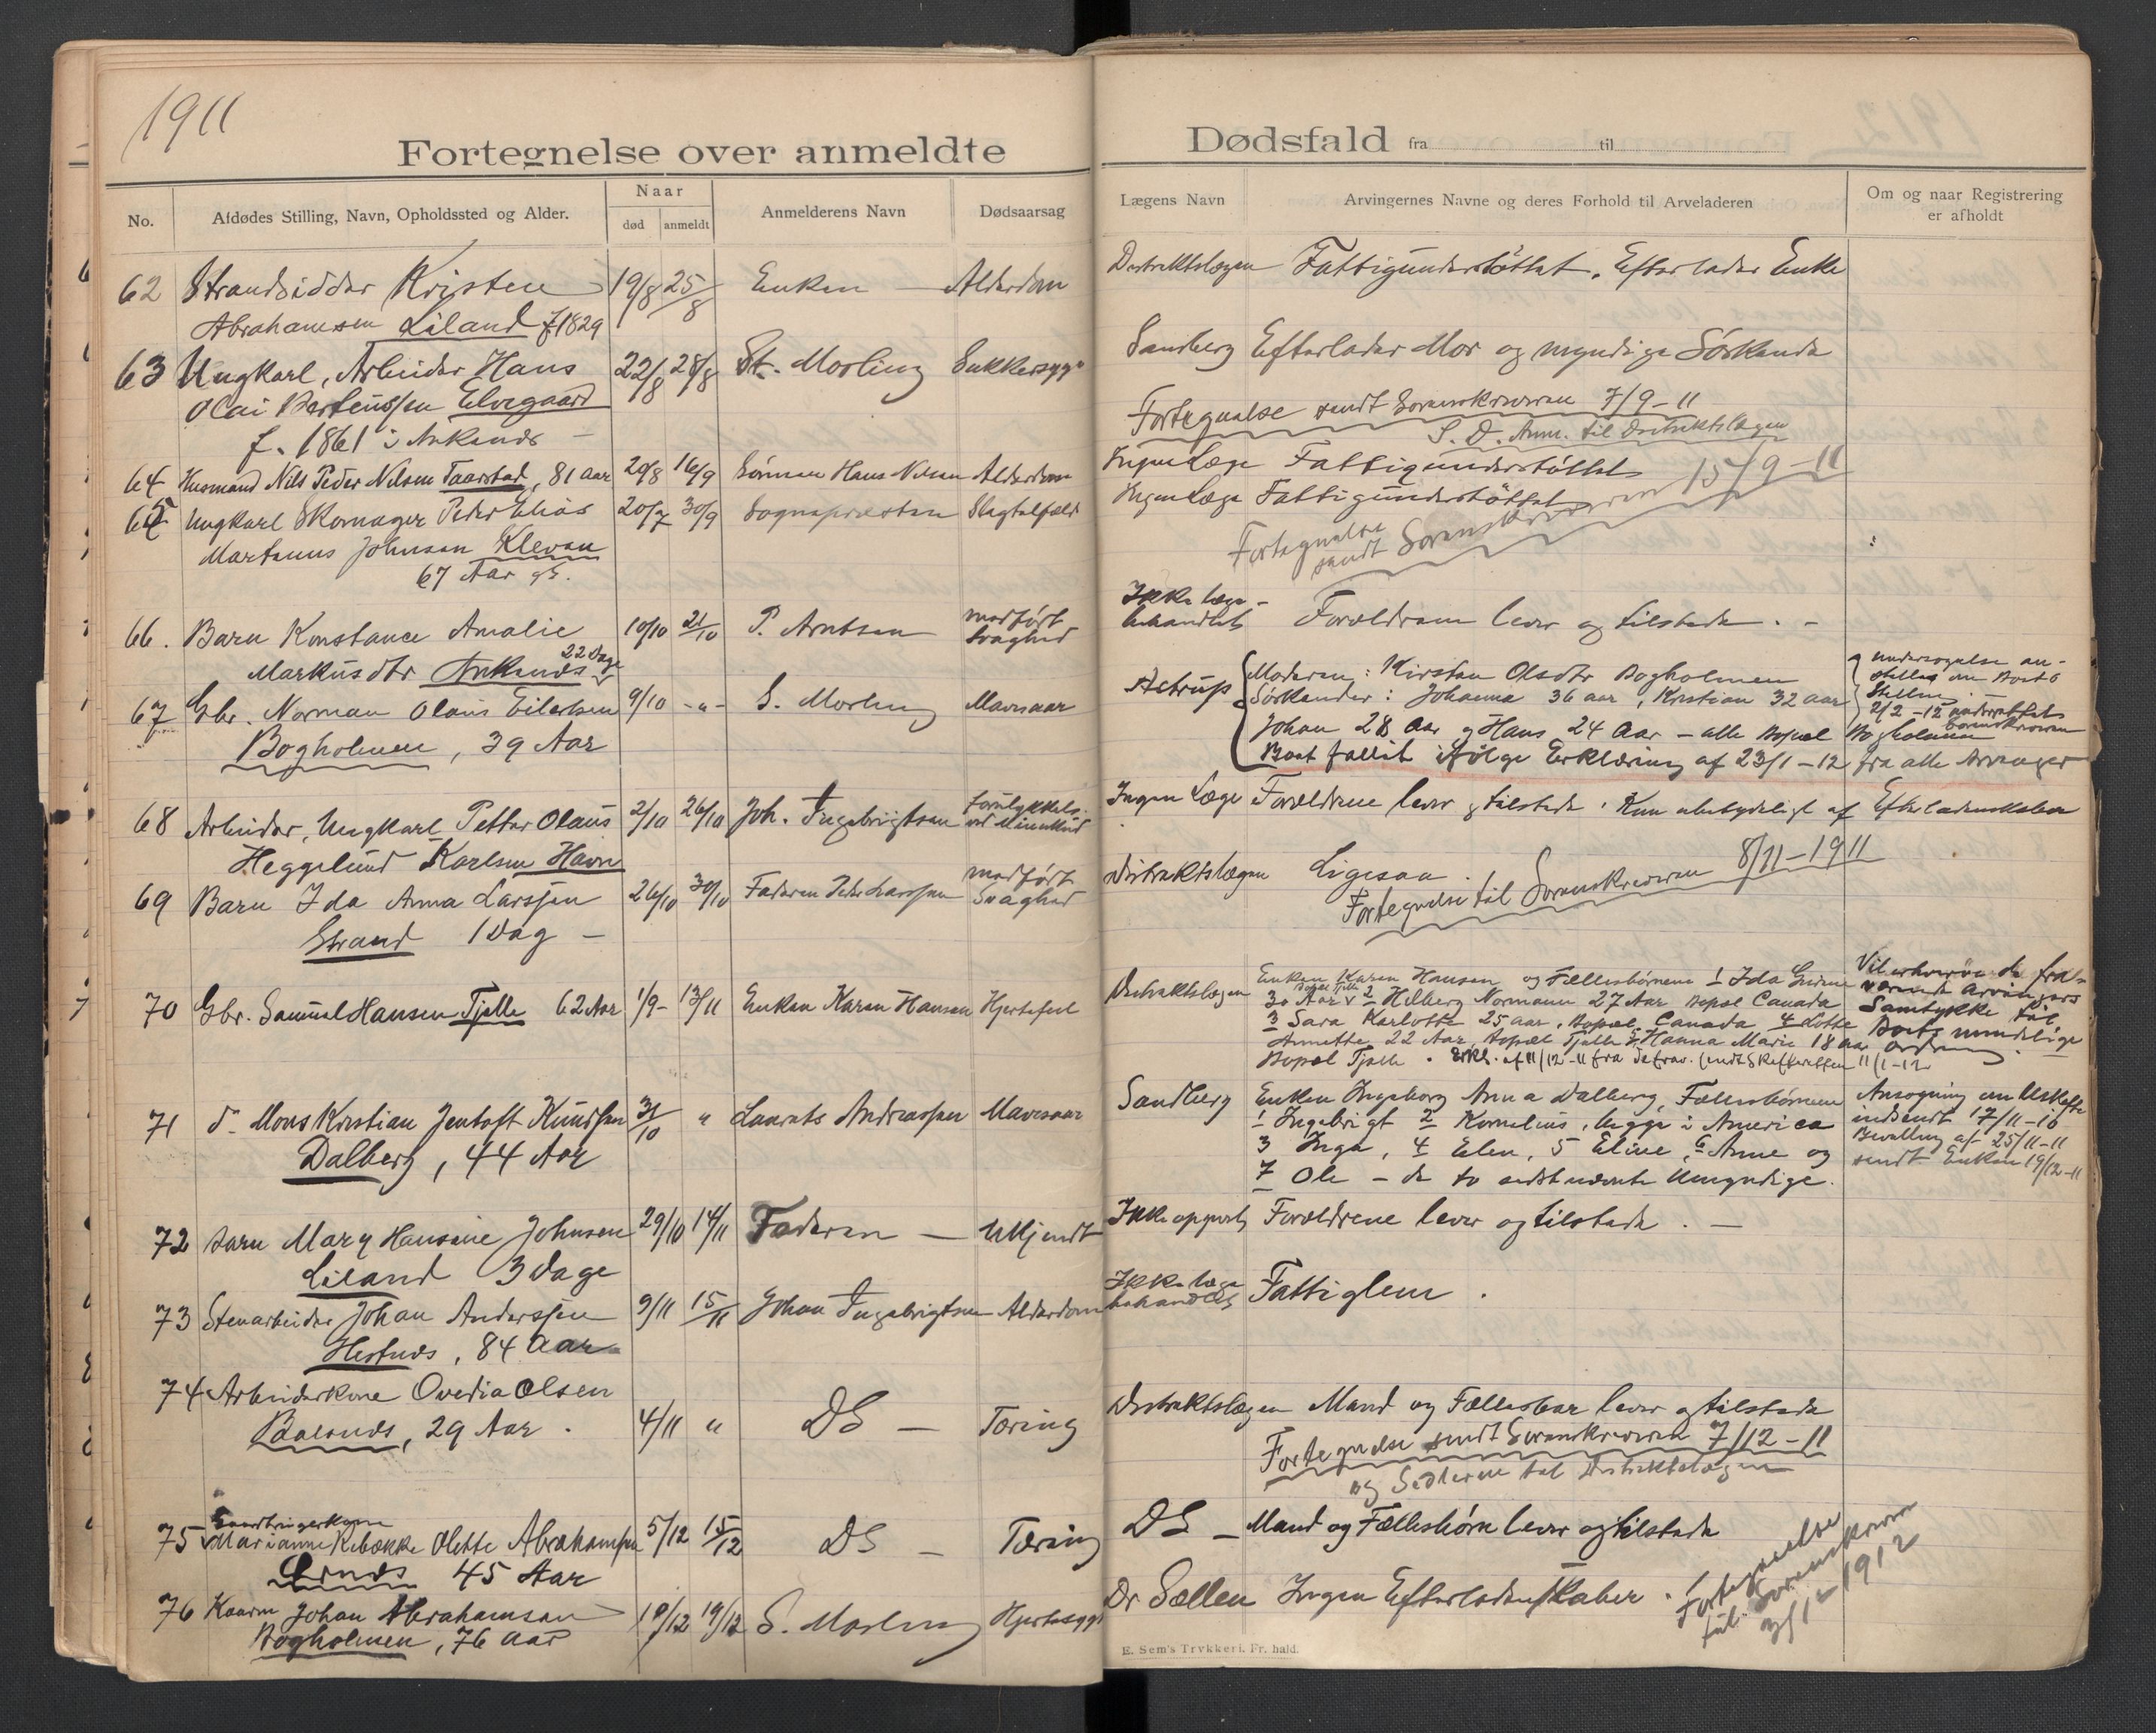 1911
Fortegnelse over anmeldte
No.
Afdødes Stilling, Navn, Opholdssted og Alder.
Naar
død
anmeldt
Anmelderens Navn
Dødsaarsag
62 Strandsidder Kristen 19/8 25/8 Enken — Alderdom
Abrahamsen Liland f 1829
63 Ungkarl, Arbeider Hans 22/8 28/8 St. Morling Sukkersyge
Olai Bertheussen Elvegaard
f. 1861 i Ankenes —
64 Husmand Nils Peder Nilsen Taarstad, 81 aar 20/8 16/9 Sønnen Hans Nilsen Alderdom
65 Ungkarl Skomager Peder Elias 20/7 30/9 Sognepresten Slagtilfæld
Martinus Johnsen Kleven
67 Aar gl.
66. Barn Konstance Amalie 10/10 21/10 P. Arntsen medført Svaghed
Markusdtr Ankenes 22 Dage
67 Gbr. Norman Olaus Eilertsen 9/10 -"- S. Morling Mavesaar
Bogholmen, 39 Aar
68 Arbeider, Ungkarl Petter Olaus 2/10 26/10 Joh. Ingebrigtsen forulykket ved
Heggelund Karlsen Havn
69 Barn Ida Anna Larssen 26/10 30/10 Faderen Peder Larssen medført Svaghed
Strand 1 Dag —
70 Gbr. Samuel Hansen Tjelle 62 Aar 1/9- 13/11 Enken Karen Hansen Hjertefeil
71 d. Mons Kristian Jentoft Knudsen 31/10 " Laurits Andreassen Mavesaar
Dalberg, 44 Aar
72 Barn Mary Hansine Johnsen 29/10 14/11 Faderen — Ukjendt
Liland 3 dage
73 Stenarbeider Johan Anderssen 9/11 15/11 Johan Ingebrigtsen Alderdom
Hestnes, 84 Aar
74 Arbeiderkone Ovedia Olsen
Balsnes, 29 Aar. 4/11 " DS — Tæring
75 Gaardbrugerkone
Marianne Rebække Olette Abrahamsen 5/12 15/12 DS — Tæring
45 Aar
76 Kaarm Johan Abrahamsen 19/12 S. Morling Hjertesygd
Bogholmen, 76 aar
Dødsfald fra til
Lægens Navn
Arvingernes Navne og deres Forhold til Arveladeren
Om og naar Registrering
er afholdt
Distriktslægen Fattigunderstøttet. Efterlader Enke
Sandberg Efterlader Mor og myndige Søskende
Fortegnelse sendt Sorenskriveren 7/9-11
S. D. Anm. til Distriktslægen
Ingen Læge Fattigunderstøttet
Ingen Læge Fattigunderstøttet
Fortegnelse
sendt Sorenskriveren 15/9-11
Ikke læge-
behandlet Forældrene lever og tilstede. —
Astrup Moderen: Kirsten Olsdtr Bogholmen
Søskender: Johanna 36 aar, Kristian 32 aar
Johan 28 Aar og Hans 24 Aar — alle Bopæl Bogholmen
Boet fallit ifølge Erklæring af 23/1-12 fra alle Arvinger
undersøgelse an-
stilles om Boets
Stilling.
2/2-12 underrettet
Sorenskriveren
Ingen Læge Forældrene lever og tilstede. Kun ubetydeligt af Efterladenskaber
Distriktslægen Ligesaa.
Fortegnelse til Sorenskriveren 8/11-1911
Distriktslægen Enken Karen Hansen og Fællesbørnene 1 Ida
Bopæl Tjelle
30 Aar 2 Hilberg Normann 27 Aar Bopæl Canada
3 Sara Karlotte 25 aar, Bopæl Canada 4 Lotte
Annette 22 Aar, Bopæl Tjelle 5 Hanna Marie 18 aar
Bopæl Tjelle. Erkl. af 11/12-11 fra de frav. sendt Skifteretten 11/1-12
Vil erhverve de fra-
værende Arvingers
Samtykke til
Boets mindelige
ordning.
Sandberg Enken Ingeborg Anna Dalberg, Fællesbørnene
1 Ingebrigt 2 Kornelius, begge i America
3 Inga, 4 Elen, 5 Eline, 6 Anne og
7 Ole — de to sidstnævnte Umyndige.
Ansøgning om Uskifte
indsendt 17/11-10
Bevilling af 25/11-11
sendt Enken 19/12-11
Ikke opgivet Forældrene lever og tilstede. —
Ikke læge
behandlet Fattiglem.
Distriktslægen Mand og Fællesbar lever og tilstede
Fortegnelse sendt Sorenskriveren 7/12-11
og Sedlerne til Distriktslægen
DS — Mand og Fællesbørn lever og tilstede
Dr Sællen Ingen Efterladenskaber.
Fortegnelse
til Sorenskriveren
3/1-1912
E. Sem's Trykkeri, Fr. hald.